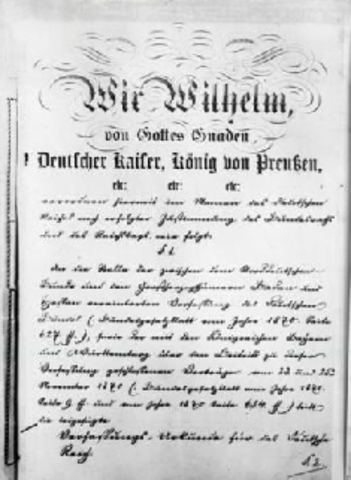 Wir Wilhelm,
von Gottes Gnaden
Deutscher Kaiser, König von Preußen,
etc: etc: etc:
verordnen hiermit im Namen des Deutschen
Reichs nach erfolgter Zustimmung des Bundesraths
und des Reichstags, was folgt:
§ 1.
An die Stelle der zwischen dem Norddeutschen
Bunde und den Großherzogthümern Baden und
Hessen vereinbarten Verfassung des Deutschen
Bundes (Bundesgesetzblatt vom Jahre 1870. Seite
627 ff.), sowie der mit den Königreichen Bayern
und Württemberg über den Beitritt zu dieser
Verfassung geschlossenen Verträge vom 23 und 25.
November 1870 (Bundesgesetzblatt vom Jahre 1871.
Seite 9 ff. und vom Jahre 1870 Seite 654 ff.) tritt
die beigefügte
Verfassungs-Urkunde für das Deutsche
Reich.
§ 2.